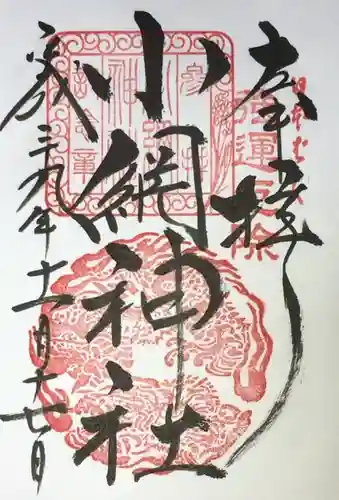 奉拝
強運厄除
小網神社
平成二九年十一月十七日